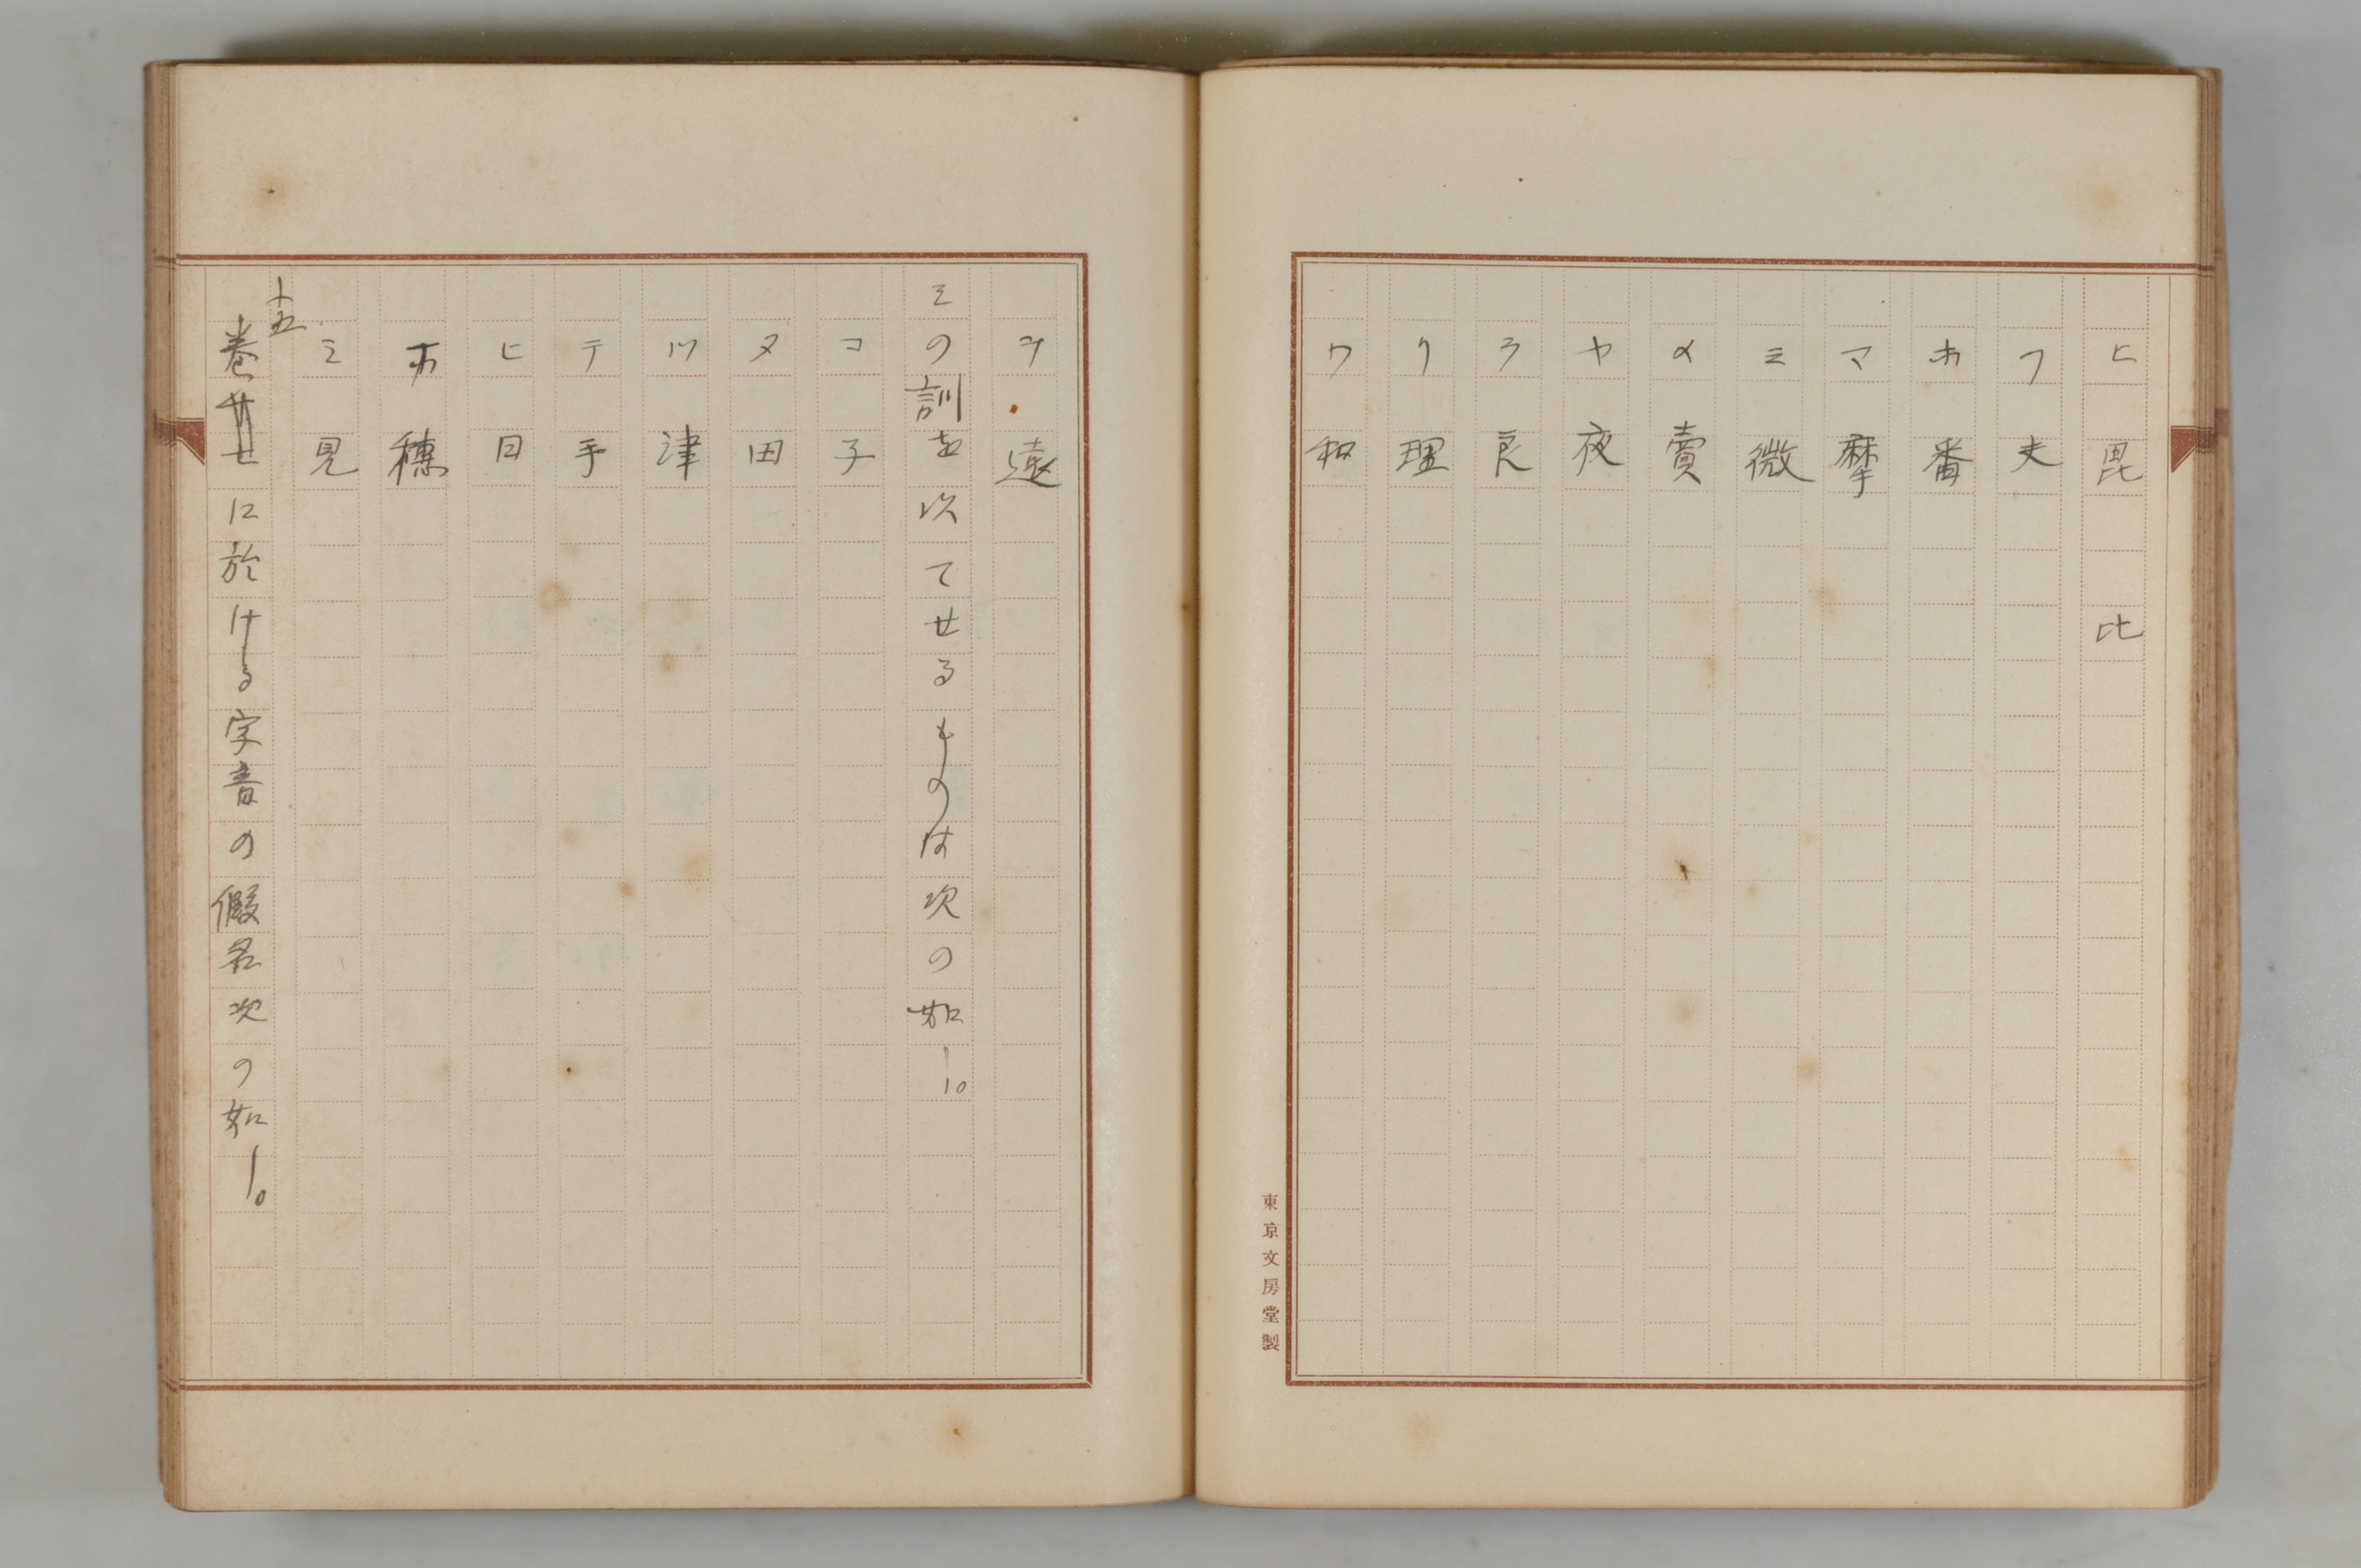 ヒ 毘 比
フ 夫
ホ 番
マ 摩
ミ 微
メ 賣
ヤ 夜
ラ 良
リ 理
ワ 和
東京文房堂製
ヲ 遠
ミの訓を以てせるものは次の如し。
コ 子
タ 田
ツ 津
テ 手
ヒ 日
ホ 穂
ミ 見
十五
巻廿七に於ける字音の假名次の如し。